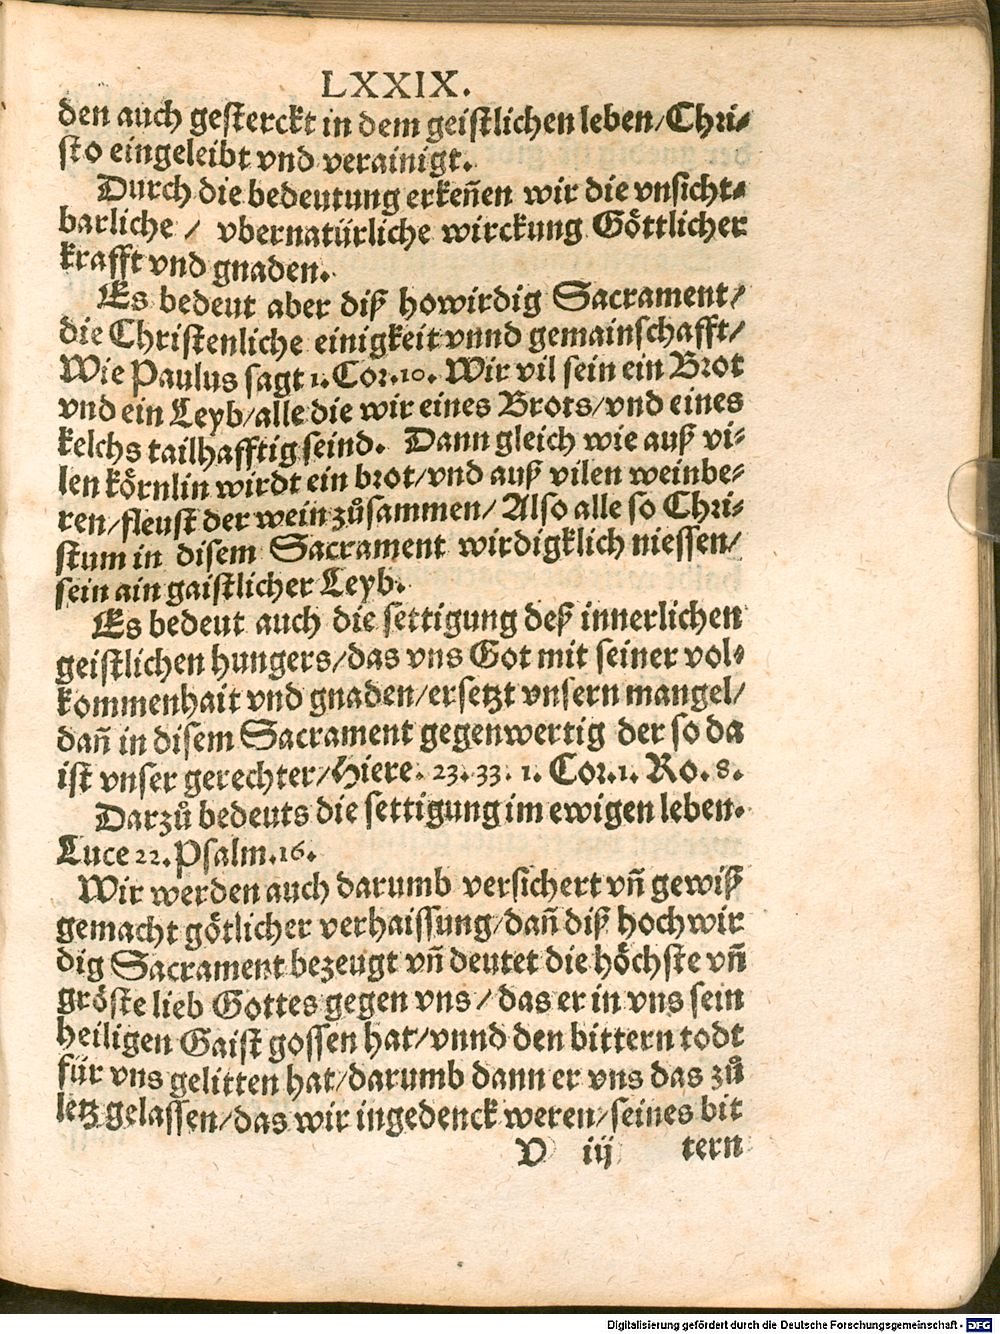 LXXIX.
den auch gesterckt in dem geistlichen leben/Chri⸗
sto eingeleibt vnd verainigt.
Durch die bedeutung erkeñen wir die vnsicht⸗
barliche / vbernatürliche wirckung Göttlicher
krafft vnd gnaden.
Es bedeut aber diß howirdig Sacrament/
die Christenliche einigkeit vnnd gemainschafft/
Wie Paulus sagt 1. Cor. 10. Wir vil sein ein Brot
vnd ein Leyb/alle die wir eines Brots/vnd eines
kelchs tailhafftig seind. Dann gleich wie auß vi⸗
len körnlin wirdt ein brot/vnd auß vilen weinbe⸗
ren/fleust der wein zůsammen/ Also alle so Chri⸗
stum in disem Sacrament wirdigklich niessen/
sein ain gaistlicher Leyb.
Es bedeut auch die settigung deß innerlichen
geistlichen hungers/das vns Got mit seiner vol⸗
kommenhait vnd gnaden/ersetzt vnsern mangel/
dañ in disem Sacrament gegenwertig der so da
ist vnser gerechter/Hiere. 23. 33. 1. Cor. 1. Ro. 8.
Darzů bedeuts die settigung im ewigen leben.
Luce 22. Psalm. 16.
Wir werden auch darumb versichert vñ gewiß
gemacht götlicher verhaissung/dañ diß hochwir
dig Sacrament bezeugt vñ deutet die höchste vñ
gröste lieb Gottes gegen vns / das er in vns sein
heiligen Gaist gossen hat/vnnd den bittern todt
für vns gelitten hat/darumb dann er vns das zů
letz gelassen/das wir ingedenck weren/seines bit
V iij tern
Digitalisierung gefördert durch die Deutsche Forschungsgemeinschaft - DFG